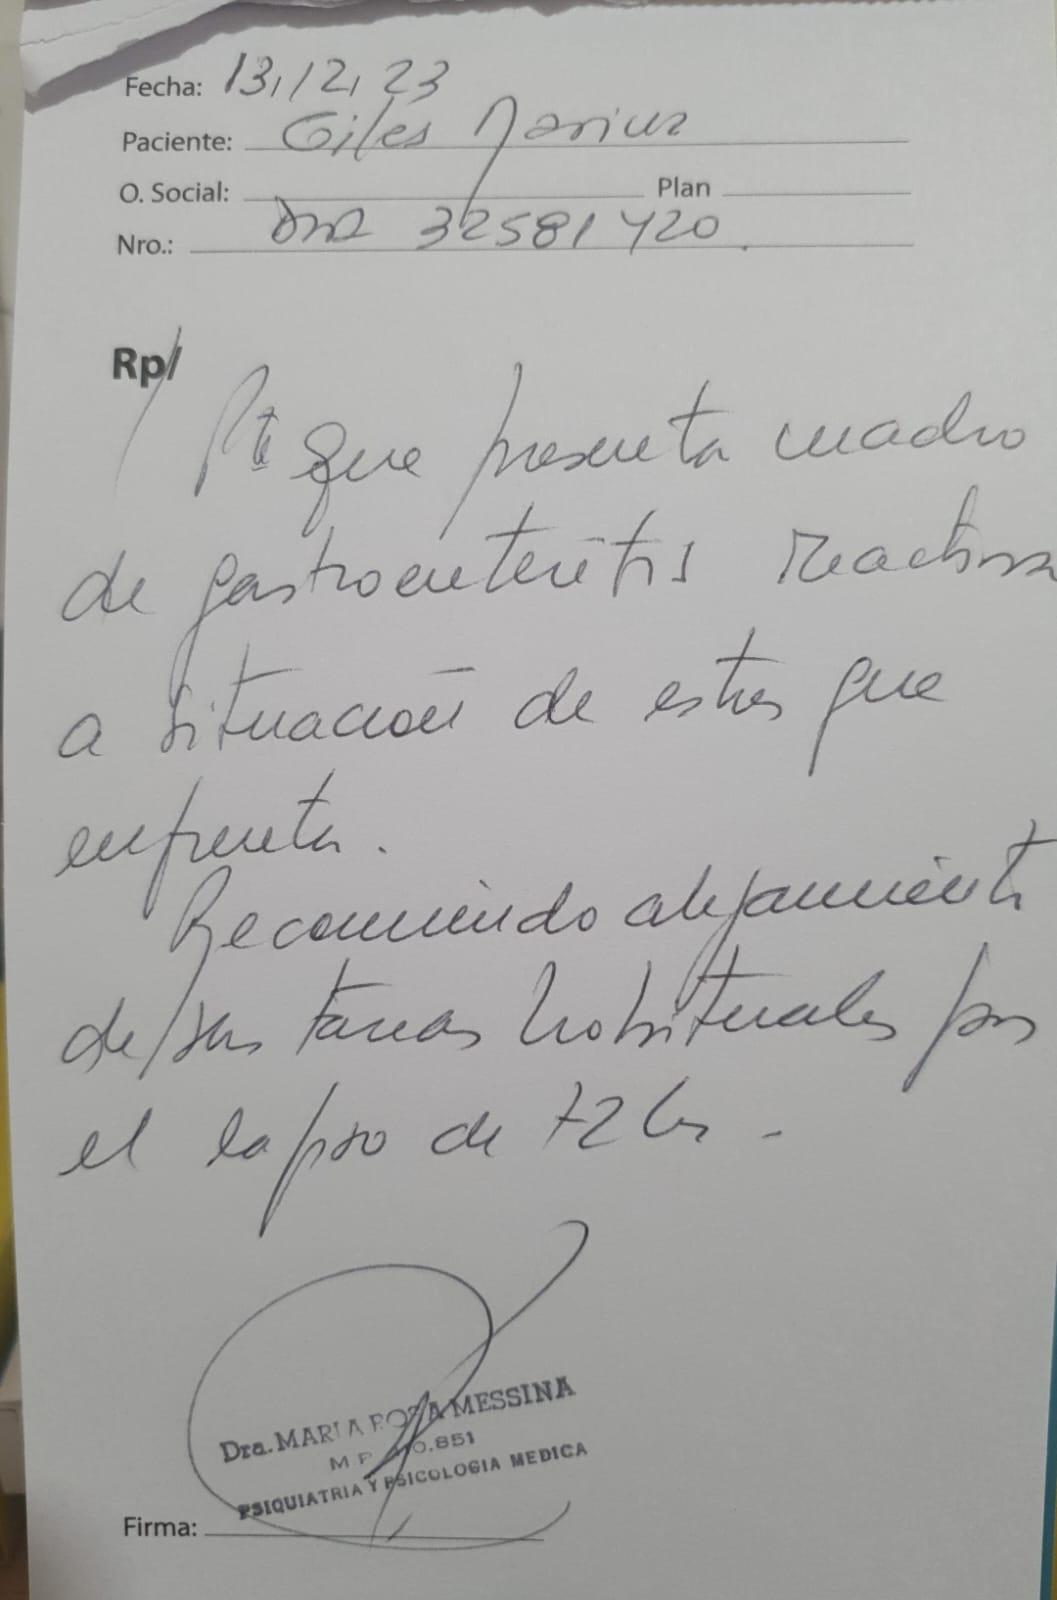 Fecha: 13, 12, 23
Paciente: Giles Marius
O. Social: Plan
Nro.: DNI 32581420.
Rp/
Pte que presenta cuadro
de gastroenteritis reactiva
a situación de estres que
enfrenta.
Recomiendo alejamiento
de sus tareas habituales por
el lapso de 72 hs.
Dra. MARIA ROSA MESSINA
M.P. 0.851
PSIQUIATRIA Y PSICOLOGIA MEDICA
Firma: